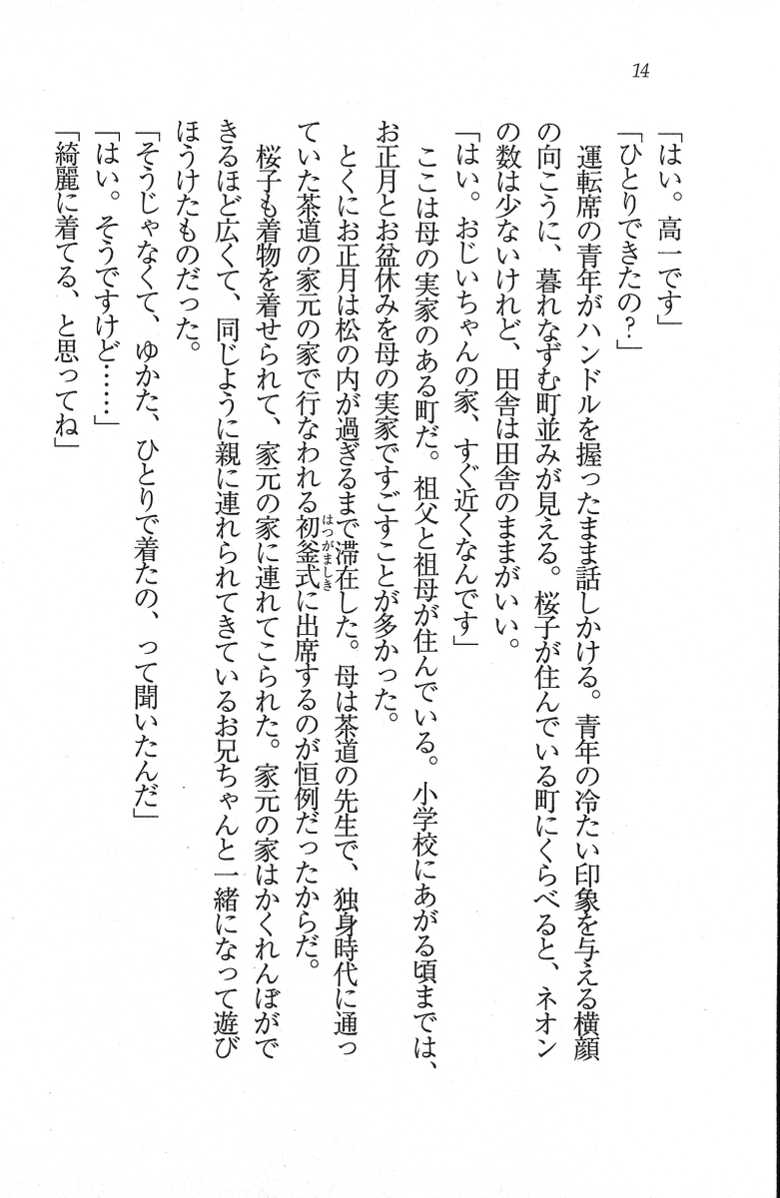 14
「はい。高一です」
「ひとりできたの？」
　運転席の青年がハンドルを握ったまま話しかける。青年の冷たい印象を与える横顔
の向こうに、暮れなずむ町並みが見える。桜子が住んでいる町にくらべると、ネオン
の数は少ないけれど、田舎は田舎のままがいい。
「はい。おじいちゃんの家、すぐ近くなんです」
　ここは母の実家のある町だ。祖父と祖母が住んでいる。小学校にあがる頃までは、
お正月とお盆休みを母の実家ですごすことが多かった。
　とくにお正月は松の内が過ぎるまで滞在した。母は茶道の先生で、独身時代に通っ
ていた茶道の家元の家で行なわれる初釜式に出席するのが恒例だったからだ。
はつがましき
　桜子も着物を着せられて、家元の家に連れてこられた。家元の家はかくれんぼがで
きるほど広くて、同じように親に連れられてきているお兄ちゃんと一緒になって遊び
ほうけたものだった。
「そうじゃなくて、ゆかた、ひとりで着たの、って聞いたんだ」
「はい。そうですけど……」
「綺麗に着てる、と思ってね」